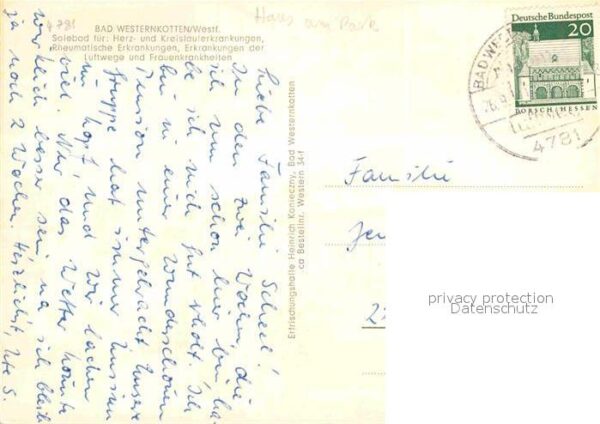 4781
Haus am Park
BAD WESTERNKOTTEN/Westf.
Solebad für: Herz- und Kreislauferkrankungen,
Rheumatische Erkrankungen, Erkrankungen der
Luftwege und Frauenkrankheiten
Liebe Familie Scheel!
In den zwei Wochen, die
ich nun schon hier bin, ha-
be ich mich gut erholt. Ich
bin in einer wunderschönen
Pension untergebracht. Unsere
Gruppe hat immer
und wir lachen
viel. Nur das Wetter könnte
wirklich besser sein, na ich bleibe
ja noch 2 Wochen. Herzlichst, Ute S.
Erfrischungshalle Heinrich Konieczny, Bad Westernkotten
ca Bestellnr. Western 34-f
Deutsche Bundespost
20
LORSCH/HESSEN
BAD WE
4781
Familie
Je
2
privacy protection
Datenschutz